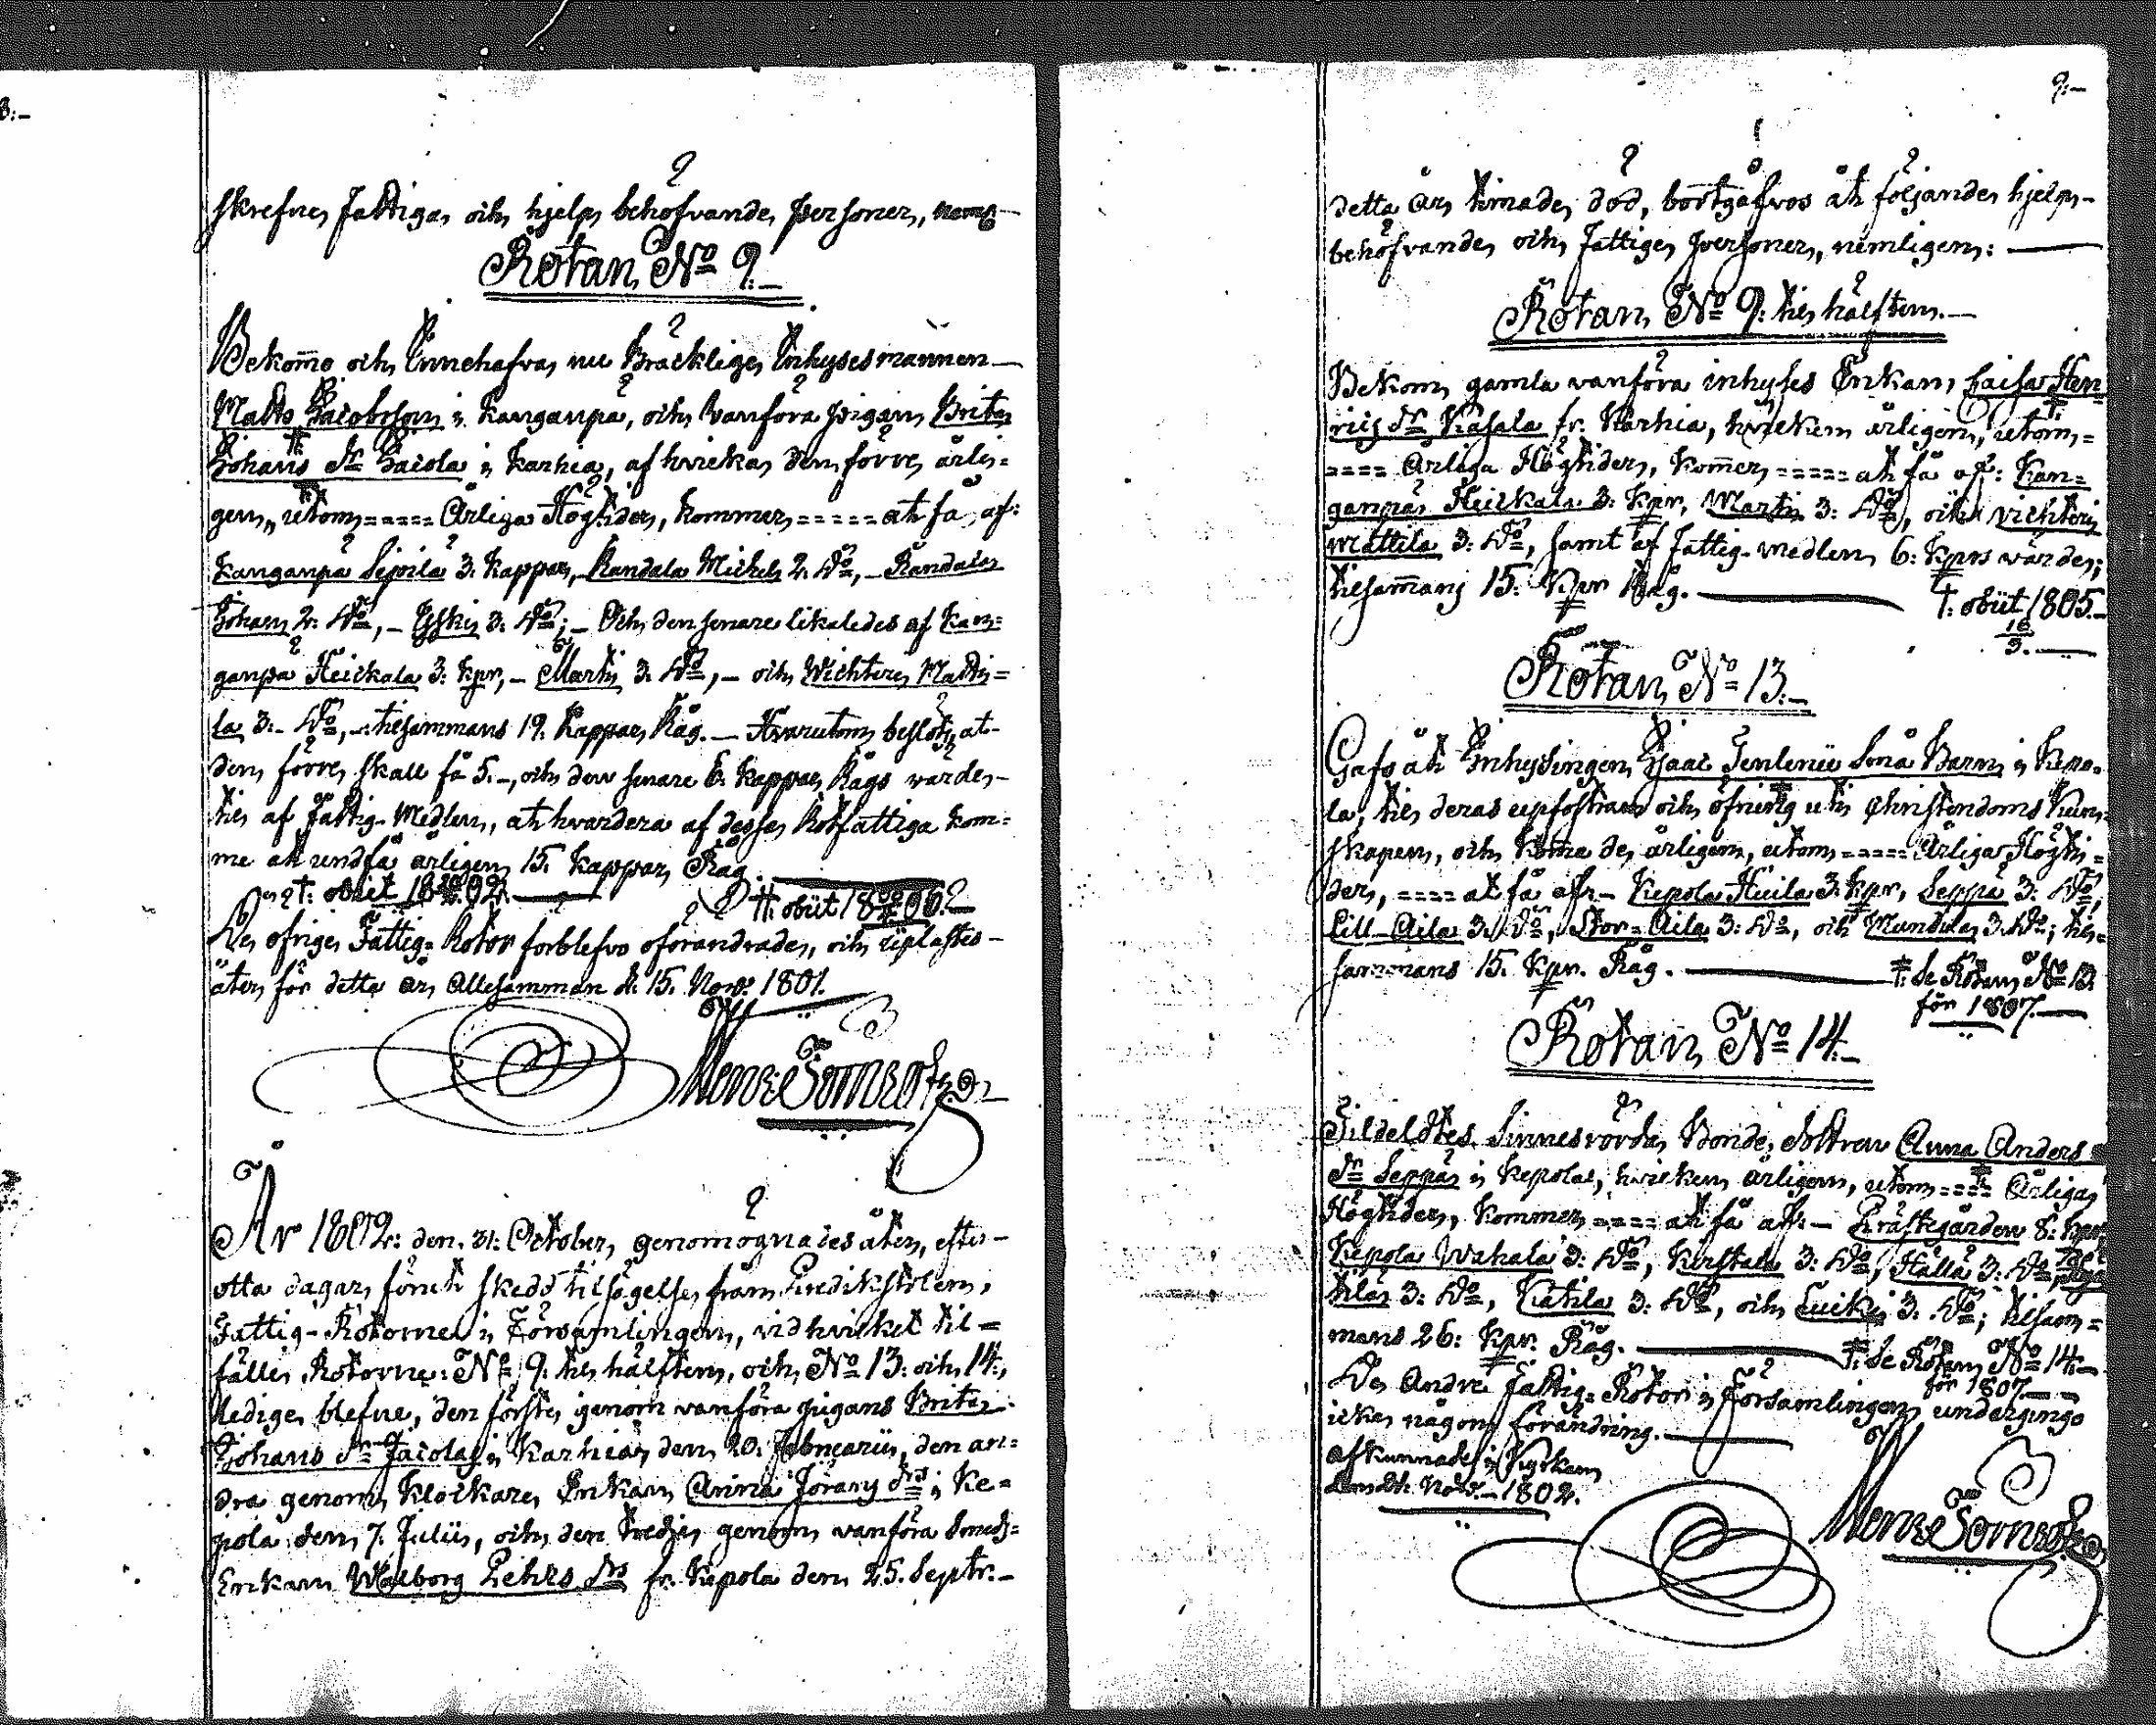 8:–
skrefne, Fattiga, och hjelp behöfvande, personer, neml–
Rotan, No 9.–
Bekomo och Innehafva, nu Bräcklige, Inhyses mannen–
Matts Jacobsson i Kanganpä, och vanföra pigan, Brita
Johans dr Jacola i Karhia, af hvicka, den förre, årli=
gen, utom ==== Årliga Högtider, kommer, ===== att få, af:
Kanganpä Sipilä 3. Kappar, Kandala Michels 2. do, – Kandala
Johan, 2. do, – Eskis 3. do; – Och, den senare likaledes af Kan=
ganpä Heickala 3. kpr, – Martti 3. do, – och Wichteri, Matti=
la 3. do, – tilsammans 19. Kappar, Råg. – Hvarutom, beslöts, at
den, förre, skall få 5.–, och den senare 6. Kappar, Rågs värde,–
til, af Fattig-Medlen, at hvardera af desse, Rotfattiga kom=
me att undfå årligen, 15. Kappar, Råg.
†. obiit 1802.
††. obiit 1802.
De, öfrige, Fattig-Rotor förblefvo oförändrade, och uplästes–
åter, för detta år, Allesamman d. 15. Nov: 1801.
År 1802: den, 31: October, genomognades åter, efter–
otta dagar, förut skedd tilsägelse, från Predikstolen,
Fattig-Rotorne, i Församlingen, vid hvilket til=
fälle, Rotorne: No 9: til hälften, och, No 13: och, 14:,
ledige, blefne, den förste, genom vanföra pigans Brita
Johans dr Jacola, i Karhia, den, 20. Februarii, den an=
dra genom, Klockare, Enkan, Anna Jörans drs i Ke=
pola den, 7. Julii, och, den tredje, genom, vanföra smeds=
Enkan Walborg Pehrs drs fr. Kepola den 25. Septr.–
9:–
detta år, timade, död, bortgåfvos åt följande, hjelp–
behöfvande, och, Fattige, personer, nemligen,:
Rotan, No 9: til, hälften.–
Bekom, gamla vanföra inhyses Enkan, Caisa Hen
rics dr Kasala fr. Karhia, hvicken årligen, utom,=
==== Årliga Högtider, kommer, ===== at få af: Kan=
ganpä, Heickala 3. kpr, Martti, 3: do, och Wichteri,
Mattila 3: do, samt af Fattig-medlen, 6: kprs värde;
tilsammans 15. kpr Råg.
†. obiit 1805.–
Rotan, No 13.–
Gafs åt Inhysingen, Isaac Små Barn, i Kepo=
la, til, deras upfostran och öfning uti Christendoms Kun=
skapen, och, komma de, årligen, utom, ==== Årliga Högti=
der, ==== at få af – Kepola Huila 3. kpr, Seppä 3: do,
Lill-Aila 3. do, Stor-Aila 3: do, och Mundula, 3. do; til=
sammans 15. kpr. Råg.
†. se Rotan, No 13.
för 1807.
Rotan, No 14.–
Tildeltes, Sinnesrörda, Bonde, dottren Anna Anders
dr Seppä i Kepola, hvicken, årligen, utom ==== Årliga,
Högtider, kommer, ==== att få af: – Prästegården 8. kpr
Kepola Wahala 3: do, Kerttala 3: do, Hälla 3: do,
tilä, 3: do, Kätilä 3: do, och, 3. do; tilsam=
mans 26: kpr. Råg.
†. se Rotan, No 14.–
för 1807.
De, Andre, Fattig-Rotor i Församlingen, undergingo
icke, någon, förändring.
Afkunnades i Kyrkan,
den Nov.– 1802.